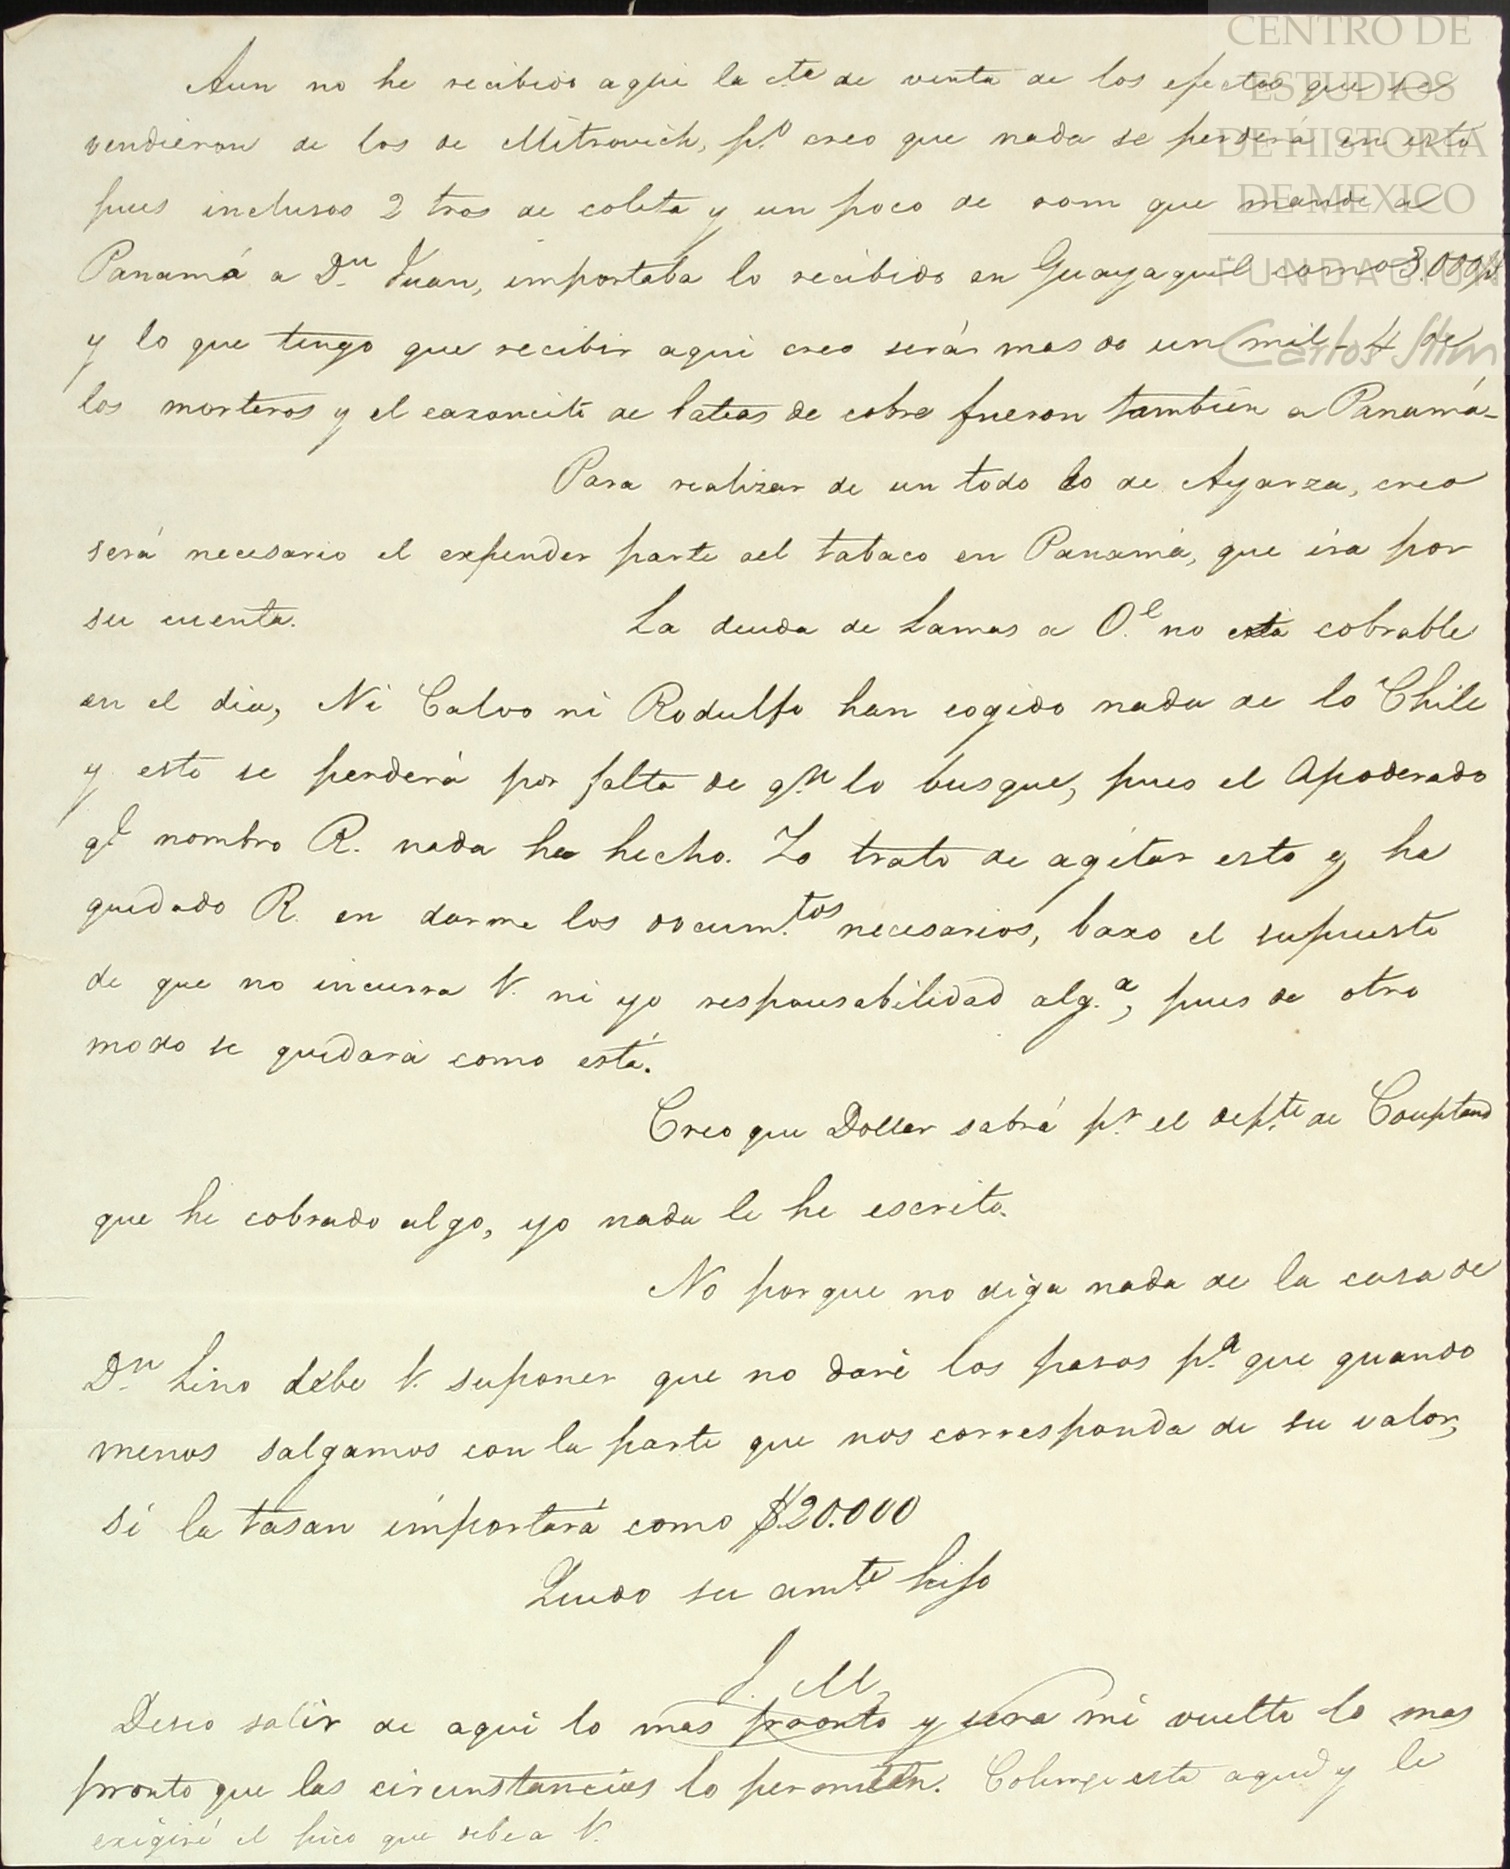 Aun no he recibido aqui la cta de venta de los efectos que se
vendieron de los de Mitrovich, p.o creo que nada se perderá en esto
pues inclusos 2 tros de coleta y un poco de rom que mandé a
Panamá a Dn Juan, importaba lo recibido en Guayaquil como 3.000 p.s
y lo que tengo que recibir aqui creo será mas de un mil - 4 de
los morteros y el cazoncito de latas de cobre fueron tambien a Panamá-
Para realizar de un todo lo de Ayarza, creo
será necesario el expender parte del tabaco en Panamá, que ira por
su cuenta. La deuda de Lamas a O.e no está cobrable
en el dia, Ni Calvo ni Rodulfo han cogido nada de lo Chile
y esto se perderá por falta de q.n lo busque, pues el Apoderado
q.e nombro R. nada ha hecho. Yo trato de agitar esto y ha
quedado R. en darme los docum.tos necesarios, baxo el supuesto
de que no incurra V. ni yo responsabilidad alg.a, pues de otro
modo se quedará como está.
Creo que Doller sabrá p.r el dep.te de
que he cobrado algo, yo nada le he escrito.
No porque no diga nada de la casa de
D.n Lino debe V. suponer que no daré los pasos p.a que quando
menos salgamos con la parte que nos corresponda de su valor,
si la tasan importará como $20.000
Quedo su am.te hijo
J. M.
Deseo salir de aqui lo mas pronto y sera mi vuelta lo mas
pronto que las circunstancias lo permitan. esta aqui y le
exigiré el pico que debe a V.
CENTRO DE
ESTUDIOS
DE HISTORIA
DE MEXICO
FUNDACIÓN
Carlos Slim